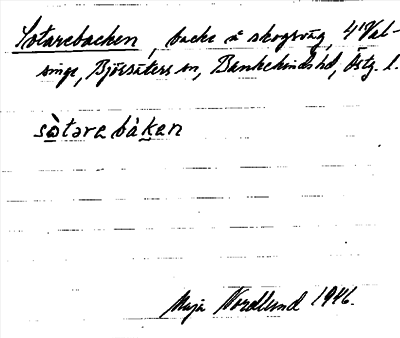 Sotarebacken, backe å skogsväg, 4 Val-
singe, Björsäters sn, Bankekinds hd, Östg. l.
sòtare bàken
Maja Nordlund 1946.